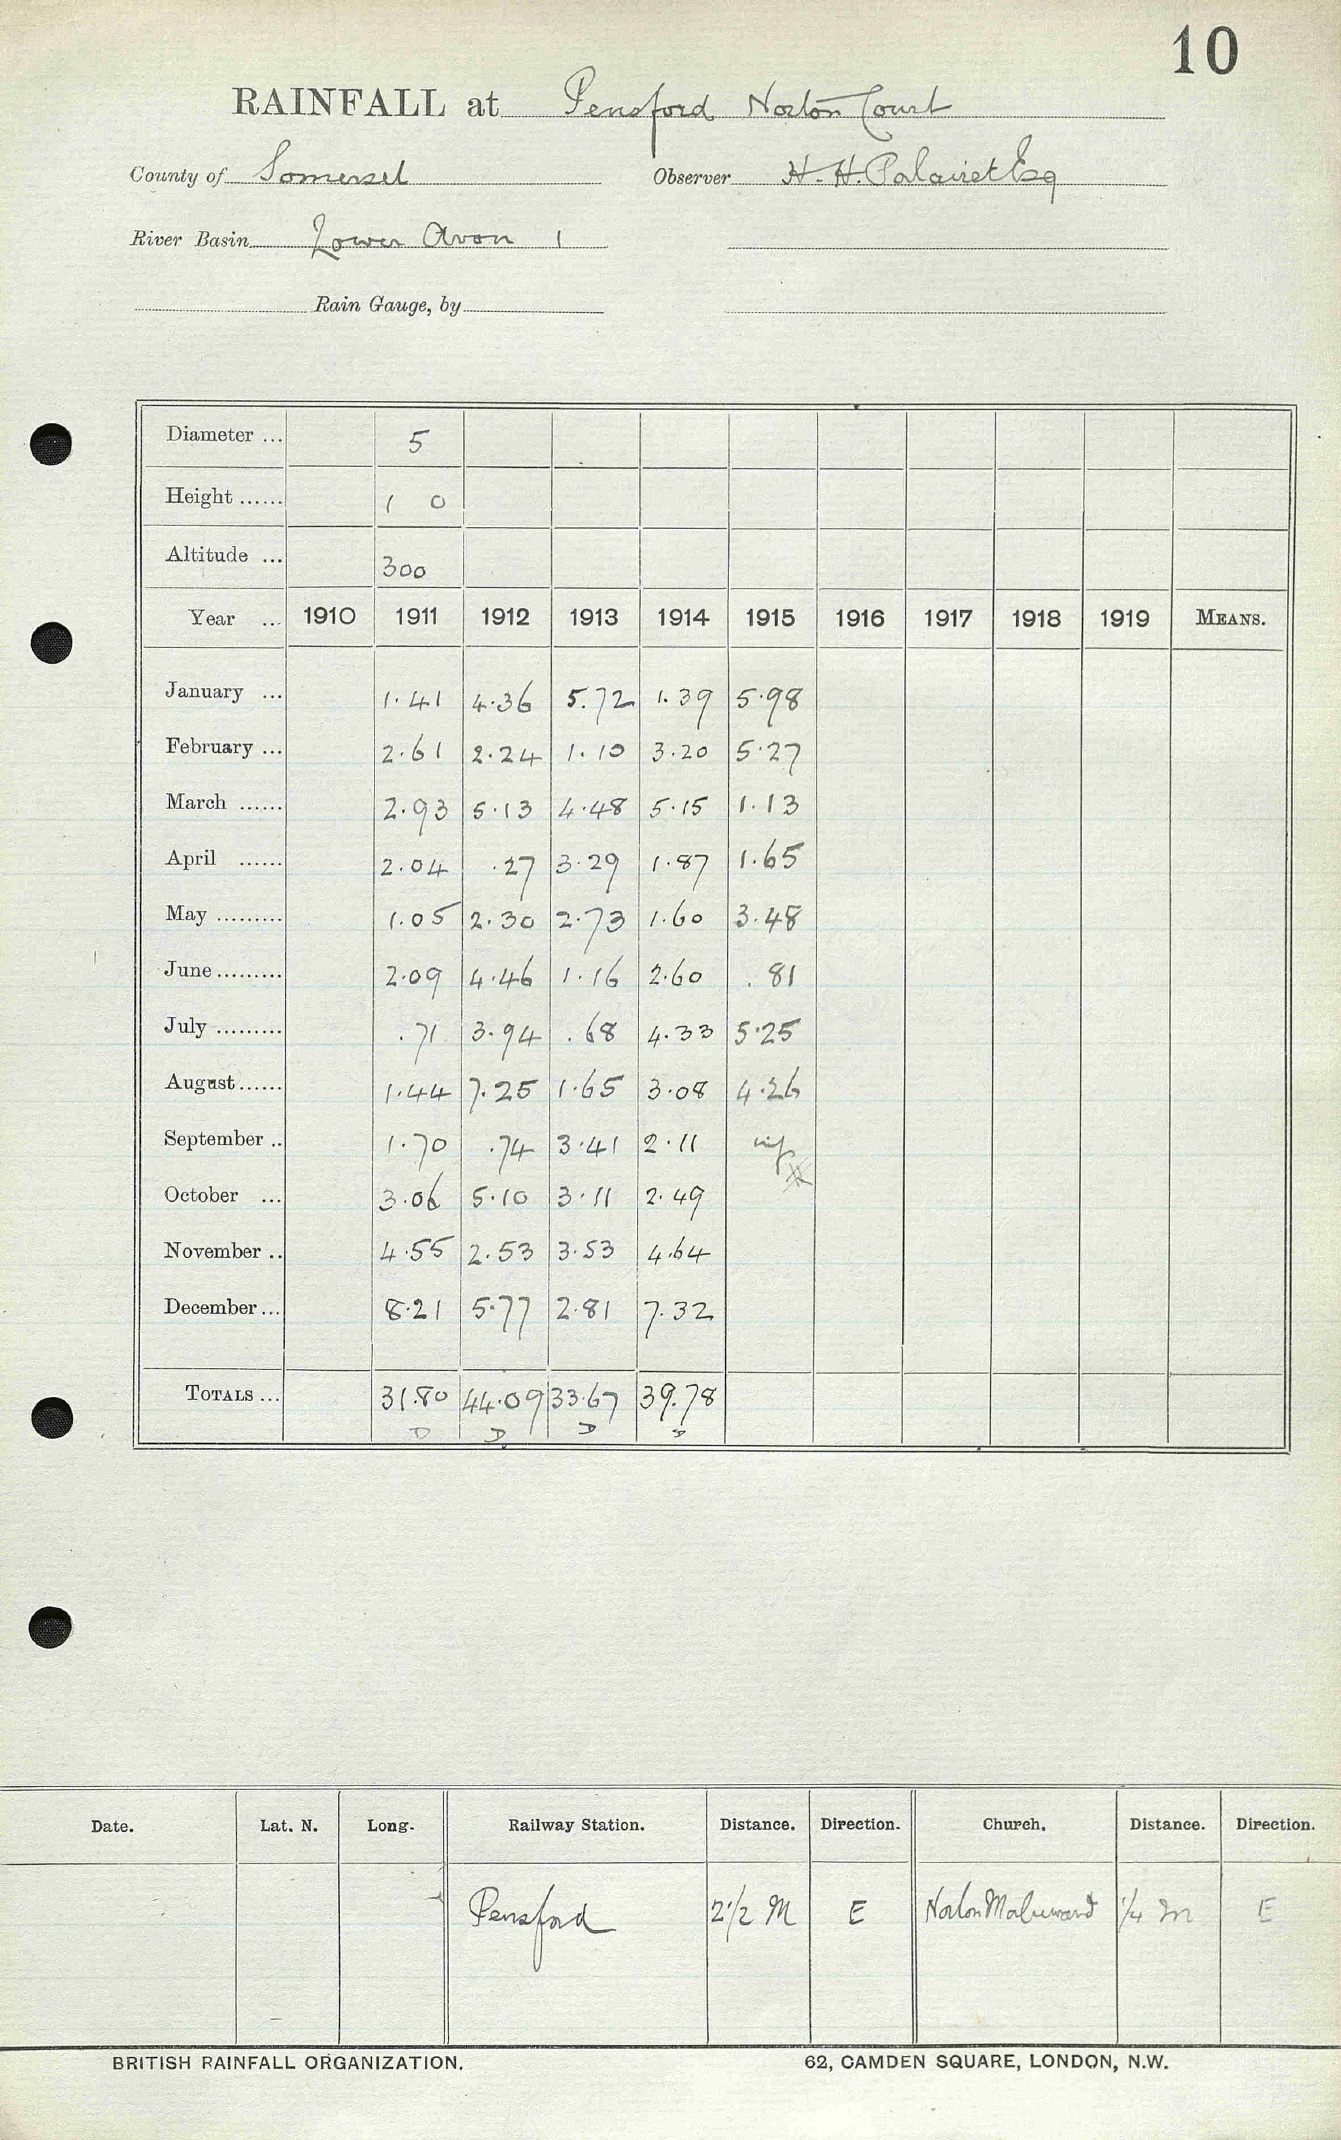 10
RAINFALL at Pensford Norton Court
County of Somerset Observer H. H. Palairet Esq
River Basin Lower Avon 1
Rain Gauge, by
Diameter ... 5
Height ...... 1 0
Altitude ... 300
Year ... 1910 1911 1912 1913 1914 1915 1916 1917 1918 1919 MEANS.
January ... 1.41 4.36 5.72 1.39 5.98
February ... 2.61 2.24 1.10 3.20 5.27
March ...... 2.93 5.13 4.48 5.15 1.13
April ...... 2.04 .27 3.29 1.87 1.65
May ......... 1.05 2.30 2.73 1.60 3.48
June ......... 2.09 4.46 1.16 2.60 .81
July ......... .71 3.94 .68 4.33 5.25
August ...... 1.44 7.25 1.65 3.08 4.26
September .. 1.70 .74 3.41 2.11
October ... 3.06 5.10 3.11 2.49
November .. 4.55 2.53 3.53 4.64
December ... 8.21 5.77 2.81 7.32
TOTALS ... 31.80 44.09 33.67 39.78
D D D
Date. Lat. N. Long. Railway Station. Distance. Direction. Church. Distance. Direction.
Pensford 2 1/2 M E Norton Malreward 1/4 m E
BRITISH RAINFALL ORGANIZATION. 62, CAMDEN SQUARE, LONDON, N.W.